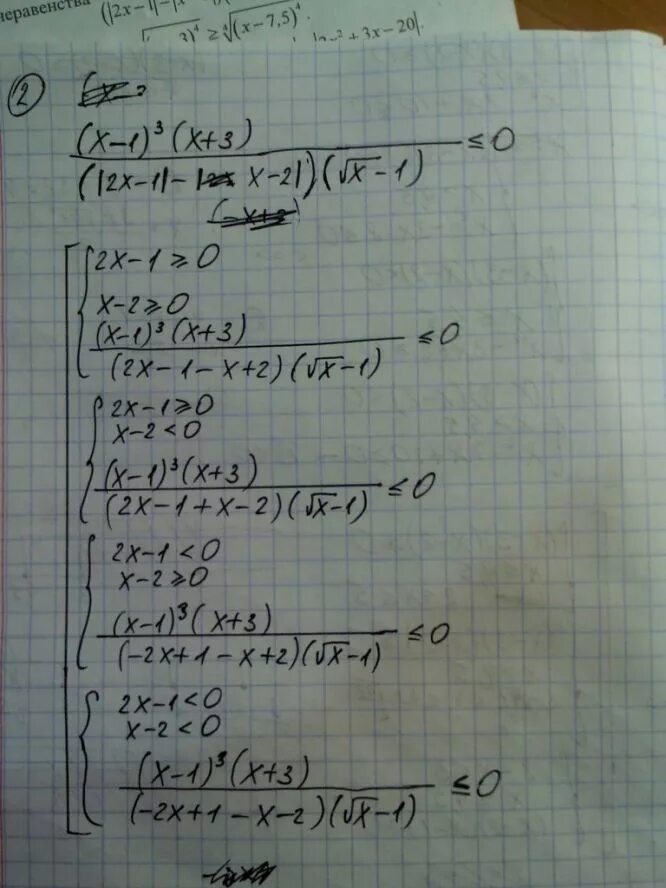 неравенства (|2x-1|-|x
3)⁴ ≥ ∜(x-7,5)⁴.
+3x-20|.
2
(x-1)³(x+3)
(|2x-1|-|x-2|)(√x-1) ≤0
2x-1≥0
x-2≥0
(x-1)³(x+3)
(2x-1-x+2)(√x-1) ≤0
2x-1≥0
x-2<0
(x-1)³(x+3)
(2x-1+x-2)(√x-1) ≤0
2x-1<0
x-2≥0
(x-1)³(x+3)
(-2x+1-x+2)(√x-1) ≤0
2x-1<0
x-2<0
(x-1)³(x+3)
(-2x+1-x-2)(√x-1) ≤0